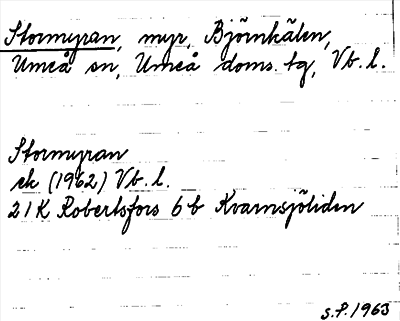 Stormyran, myr, Björnkälen,
Umeå sn, Umeå doms. tg, Vb. l.
Stormyran
ek (1962) Vb. l.
21K Robertsfors 6b Kvarnsjöliden
S.P. 1963